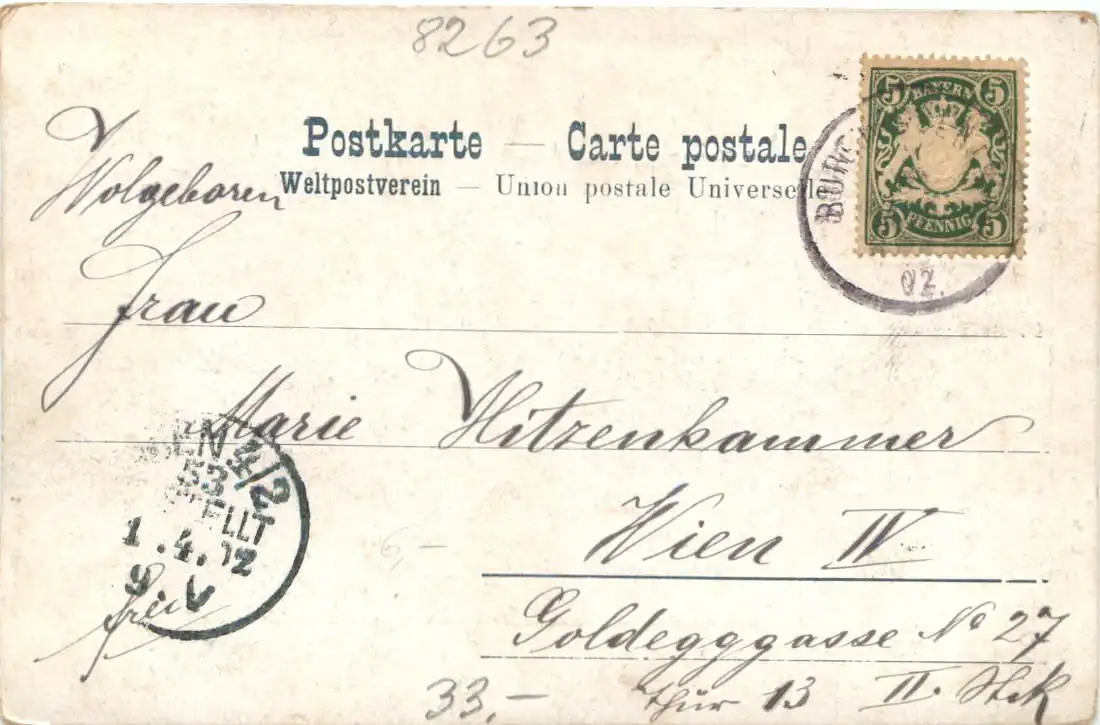 8263
BAYERN
5 5
5 PFENNIG 5
02.
Postkarte — Carte postale
Weltpostverein — Union postale Universelle
Wolgeboren
Frau
Marie Hitzenkammer
Wien IV
Goldegggasse No 27
Thür 13 II. Stck
4/2
53
1.4.02
9.V
frei
6,–
33,–